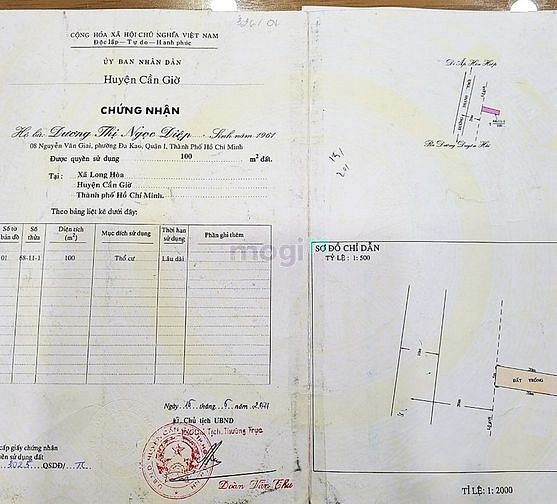 CỘNG HÒA XÃ HỘI CHỦ NGHĨA VIỆT NAM
Độc lập - Tự do - Hạnh phúc
ỦY BAN NHÂN DÂN
Huyện Cần Giờ
CHỨNG NHẬN
Họ là: Dương Thị Ngọc Diệp - Sinh năm 1961
08 Nguyễn Văn Giai, phường Đa Kao, Quận I, Thành Phố Hồ Chí Minh
Được quyền sử dụng 100 m² đất.
Tại : Xã Long Hòa
Huyện Cần Giờ
Thành phố Hồ Chí Minh.
Theo bảng liệt kê dưới đây:
Số tờ bản đồ
Số thửa
Diện tích (m²)
Mục đích sử dụng
Thời hạn sử dụng
Phần ghi thêm
01 68-11-1 100 Thổ cư Lâu dài
mogi
Ngày 15 tháng 5 năm
Chủ tịch UBND
Tịch Thường Trực
Đoàn Văn Thu
cấp giấy chứng nhận
sử dụng đất
QSDĐ/
Đi Ấp Hòa Hiệp
Ra Đường Duyên Hải
SƠ ĐỒ CHỈ DẪN
TỶ LỆ : 1: 500
ĐẤT TRỐNG
TỈ LỆ : 1: 2000